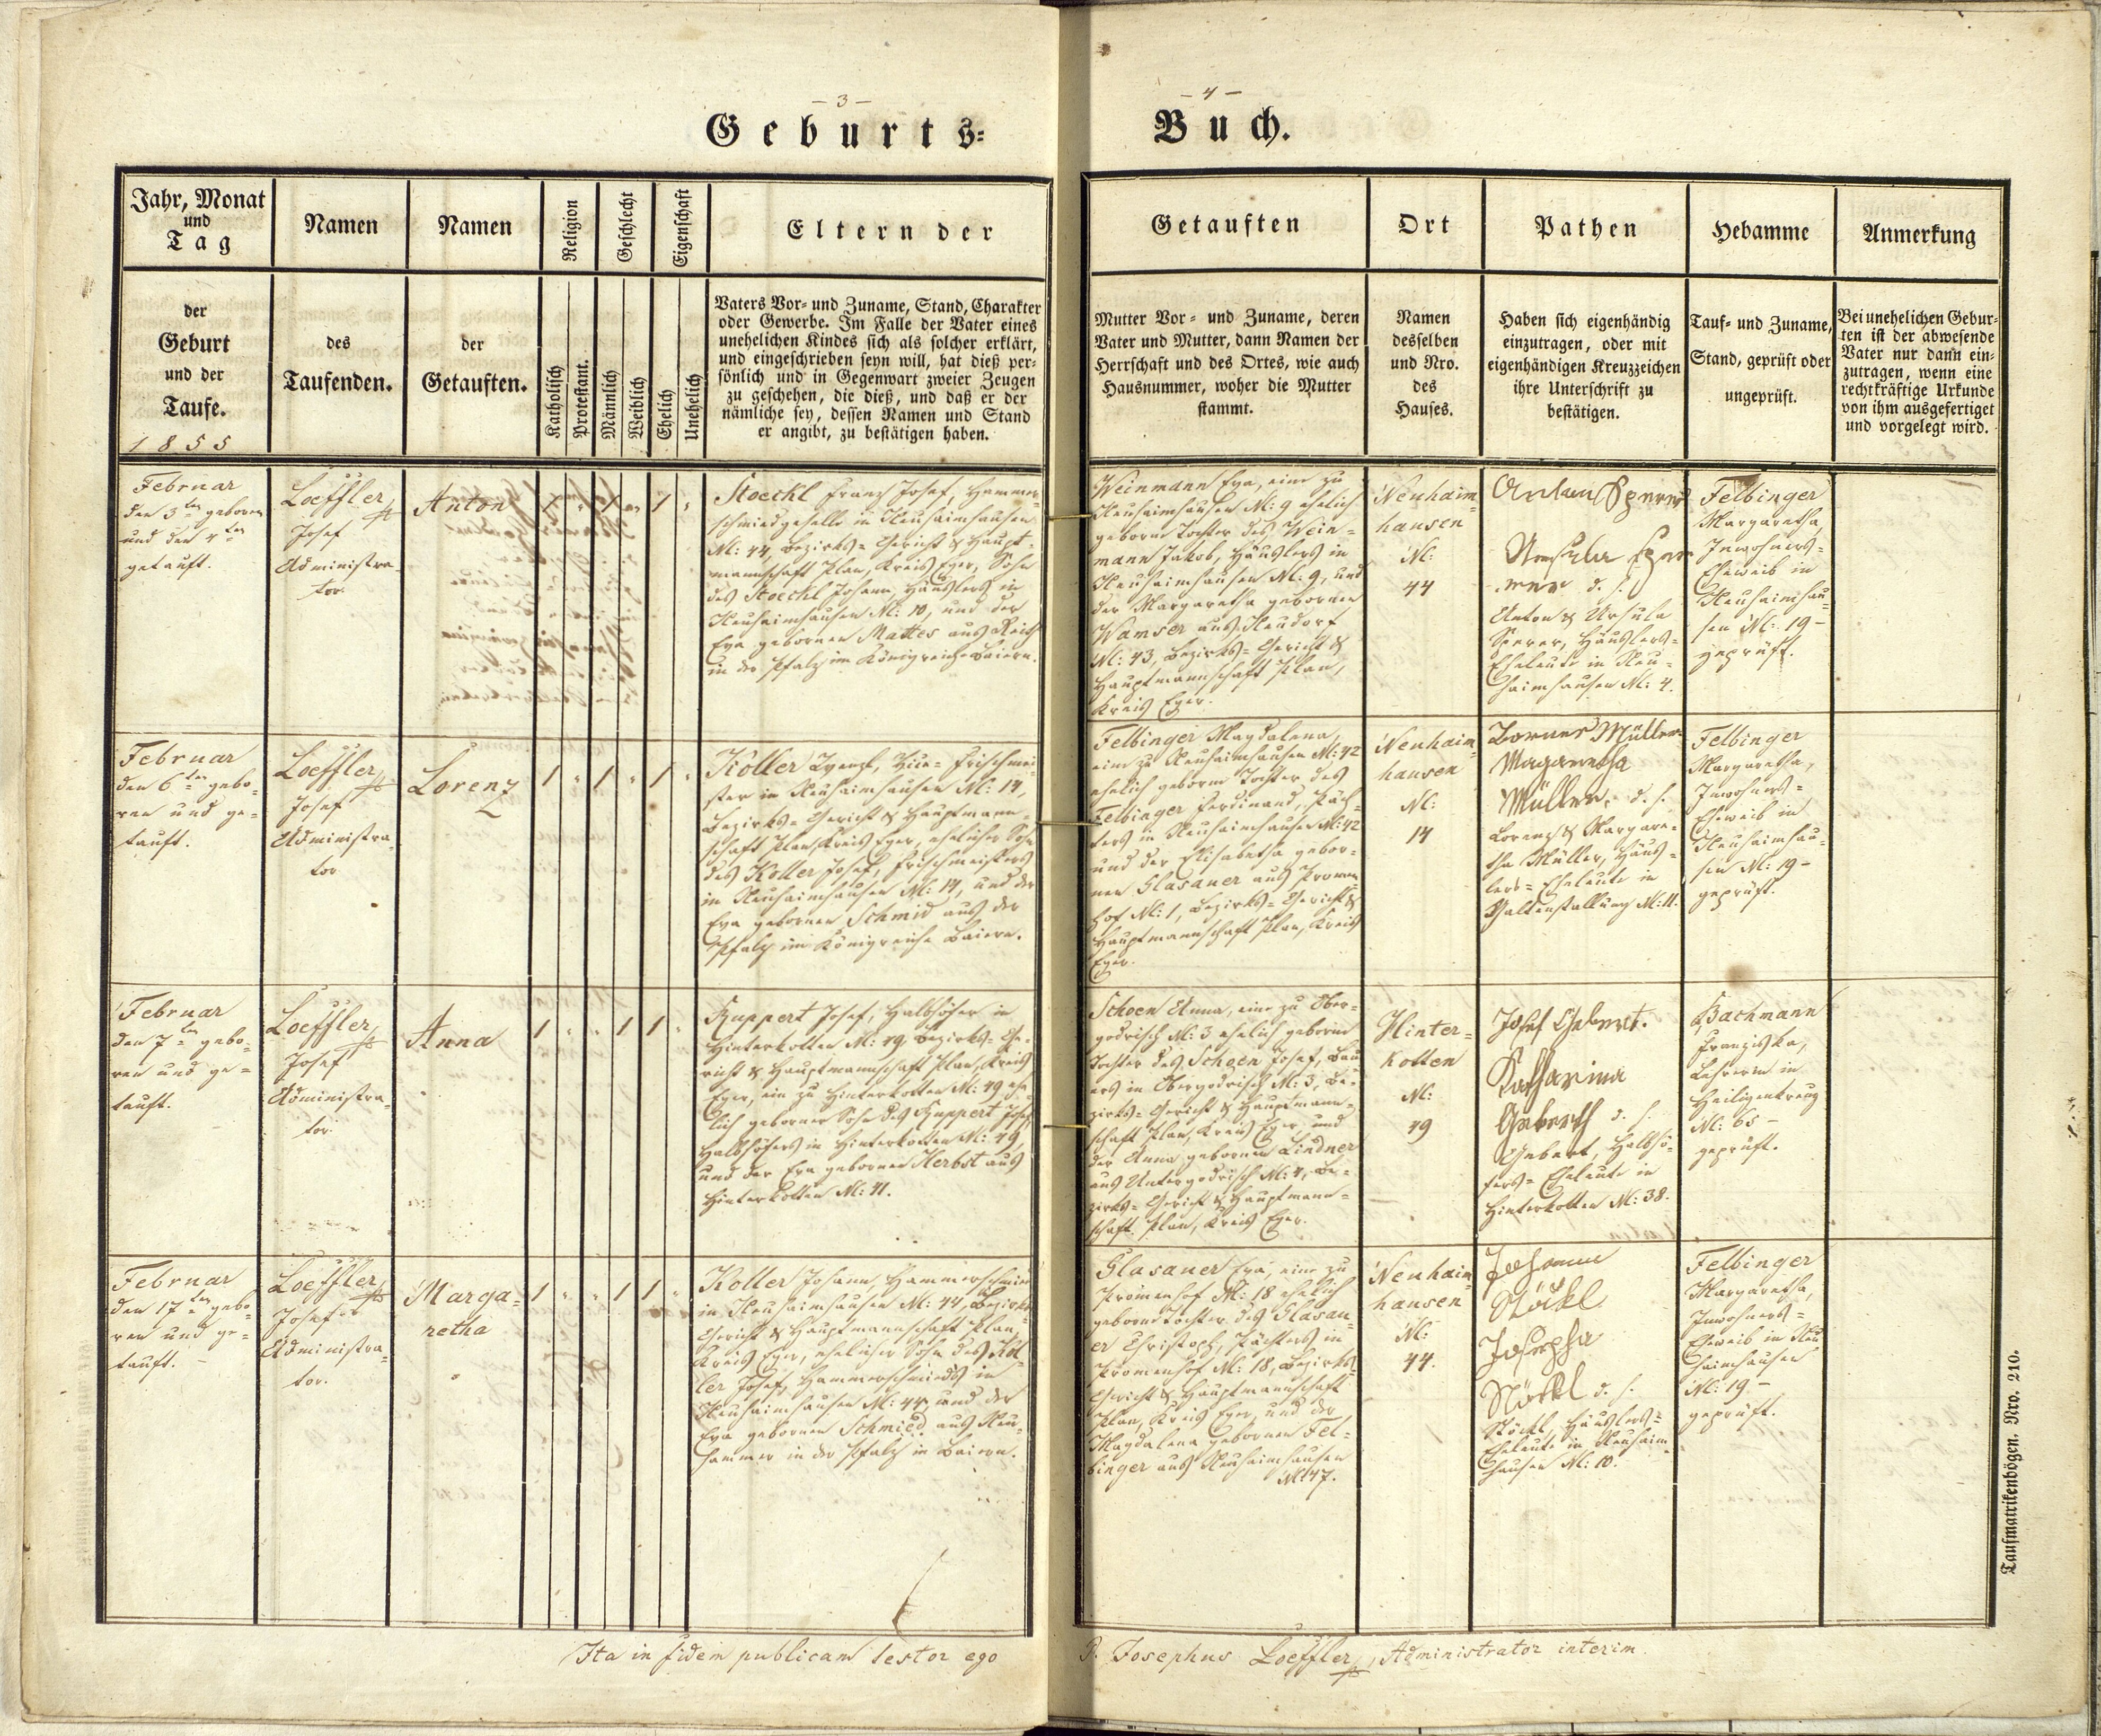 - 3 -
Geburts=
Jahr, Monat
und
Tag
Namen
Namen
Religion
Geschlecht
Eigenschaft
Eltern der
der
Geburt
und der
Taufe.
1855
des
Taufenden.
der
Getauften.
Katholisch
Protestant.
Männlich
Weiblich
Ehelich
Unehelich
Vaters Vor= und Zuname, Stand, Charakter
oder Gewerbe. Im Falle der Vater eines
unehelichen Kindes sich als solcher erklärt,
und eingeschrieben seyn will, hat dieß per=
sönlich und in Gegenwart zweier Zeugen
zu geschehen, die dieß, und daß er der
nämliche sey, dessen Namen und Stand
er angibt, zu bestätigen haben.
Februar
den 3ten geboren
und den 4ten
getauft.
Loeffler
Josef
Administra=
tor
Anton
1 " 1 " 1 "
Stoeckl Franz Josef, Hammer=
schmiedgeselle in Neuhaimhausen
N: 44, Bezirks=Gericht & Haupt=
mannschaft Plan, Kreis Eger, Sohn
des Stoeckl Johann, Häuslers in
Neuhaimhausen N: 10, und der
Eva gebornen Mattes aus
in der Pfalz im Königreiche Baiern.
Februar
den 6ten gebo=
ren und ge=
tauft.
Loeffler
Josef
Administra=
tor
Lorenz
1 " 1 " 1 "
Koller Frischmei=
ster in Neuhaimhausen N: 14,
Bezirks=Gericht & Hauptmann=
schaft Plan, Kreis Eger, ehelicher Sohn
des Koller Josef, Frischmeisters
in Neuhaimhausen N: 14, und der
Eva gebornen Schmid aus der
Pfalz im Königreiche Baiern.
Februar
den 7ten gebo=
ren und ge=
tauft.
Loeffler
Josef
Administra=
tor
Anna
1 " " 1 1 "
Ruppert Josef, Halbhöfer in
Hinterkotten N: 49, Bezirks=Ge=
richt & Hauptmannschaft Plan, Kreis
Eger, ein zu Hinterkotten N: 49 ehe=
lich geborner Sohn des Ruppert Josef
Halbhöfers in Hinterkotten N: 49,
und der Eva gebornen Herbst aus
Hinterkotten N: 41.
Februar
den 17ten gebo=
ren und ge=
tauft.
Loeffler
Josef
Administra=
tor.
Marga=
retha
1 " " 1 1 "
Koller Johann, Hammerschmied
in Neuhaimhausen N: 44, Bezirks
Gericht & Hauptmannschaft Plan,
Kreis Eger, ehelicher Sohn des Kol=
ler Josef, Hammerschmieds in
Neuhaimhausen N: 44, und der
Eva gebornen Schmied aus Neu=
hammer in der Pfalz in Baiern.
Ita in fidem publicam testor ego
- 4 -
Buch.
Getauften
Ort
Pathen
Hebamme
Anmerkung
Mutter Vor= und Zuname, deren
Vater und Mutter, dann Namen der
Herrschaft und des Ortes, wie auch
Hausnummer, woher die Mutter
stammt.
Namen
desselben
und Nro.
des
Hauses.
Haben sich eigenhändig
einzutragen, oder mit
eigenhändigen Kreuzzeichen
ihre Unterschrift zu
bestätigen.
Tauf= und Zuname,
Stand, geprüft oder
ungeprüft.
Bei unehelichen Gebur=
ten ist der abwesende
Vater nur dann ein=
zutragen, wenn eine
rechtkräftige Urkunde
von ihm ausgefertiget
und vorgelegt wird.
Weinmann Eva, eine zu
Neuhaimhausen N: 9 ehelich
geborne Tochter des Wein=
mann Jakob, Häuslers in
Neuhaimhausen N: 9, und
der Margaretha gebornen
Wamser aus Neudorf
N: 43, Bezirks=Gericht &
Hauptmannschaft Plan,
Kreis Eger.
Neuhaim=
hausen
N:
44
Anton
Ursula
d. h.
Anton & Ursula
Häuslers=
Eheleute in Neu=
haimhausen N: 4.
Felbinger
Margaretha,
Inwohners=
Eheweib in
Neuhaimhau=
sen N: 19 -
geprüft.
Felbinger Magdalena,
eine zu Neuhaimhausen N: 42
ehelich geborne Tochter des
Felbinger Ferdinand, Päch=
ters in Neuhaimhausen N: 42
und der Elisabetha gebor=
nen Glasauer aus Promen=
hof N: 1, Bezirks=Gericht &
Hauptmannschaft Plan, Kreis
Eger.
Neuhaim=
hausen
N:
14
Müller
Margaretha
Müller, d. h.
Lorenz & Margare=
tha Müller, Häus=
lers=Eheleute in
N: 11.
Felbinger
Margaretha,
Inwohners=
Eheweib in
Neuhaimhau=
sen N: 19 -
geprüft.
Schoen Anna, eine zu Ober=
godrisch N: 3 ehelich geborne
Tochter des Schoen Josef, Bau=
ers in Obergodrisch N: 3, Be=
zirks=Gericht & Hauptmann=
schaft Plan, Kreis Eger, und
der Anna gebornen Lindner
aus Untergodrisch N: 4, Be=
zirks=Gericht & Hauptmann=
schaft Plan, Kreis Eger.
Hinter=
kotten
N:
49
Josef Gebert.
Katharina
Geberth d. h.
Gebert, Halbhö=
fers=Eheleute in
Hinterkotten N: 38.
Bachmann
Franziska,
Lehrerin in
Heiligenkreuz
N: 65 -
geprüft.
Glasauer Eva, eine zu
Promenhof N: 18 ehelich
geborne Tochter des Glasau=
er Christoph, Pächters in
Promenhof N: 18, Bezirks=
Gericht & Hauptmannschaft
Plan, Kreis Eger, und der
Magdalena gebornen Fel=
binger aus Neuhaimhausen
N: 47.
Neuhaim=
hausen
N:
44.
Johann
Stöckl
Josepha
Stöckl d. h.
Stöckl, Häuslers=
Eheleute in Neuhaim=
hausen N: 10.
Felbinger
Margaretha,
Inwohners=
Eheweib in Neu
haimhausen
N: 19 -
geprüft.
P. Josephus Loeffler, Administrator interim
Taufmatrikenbögen. Nro. 210.